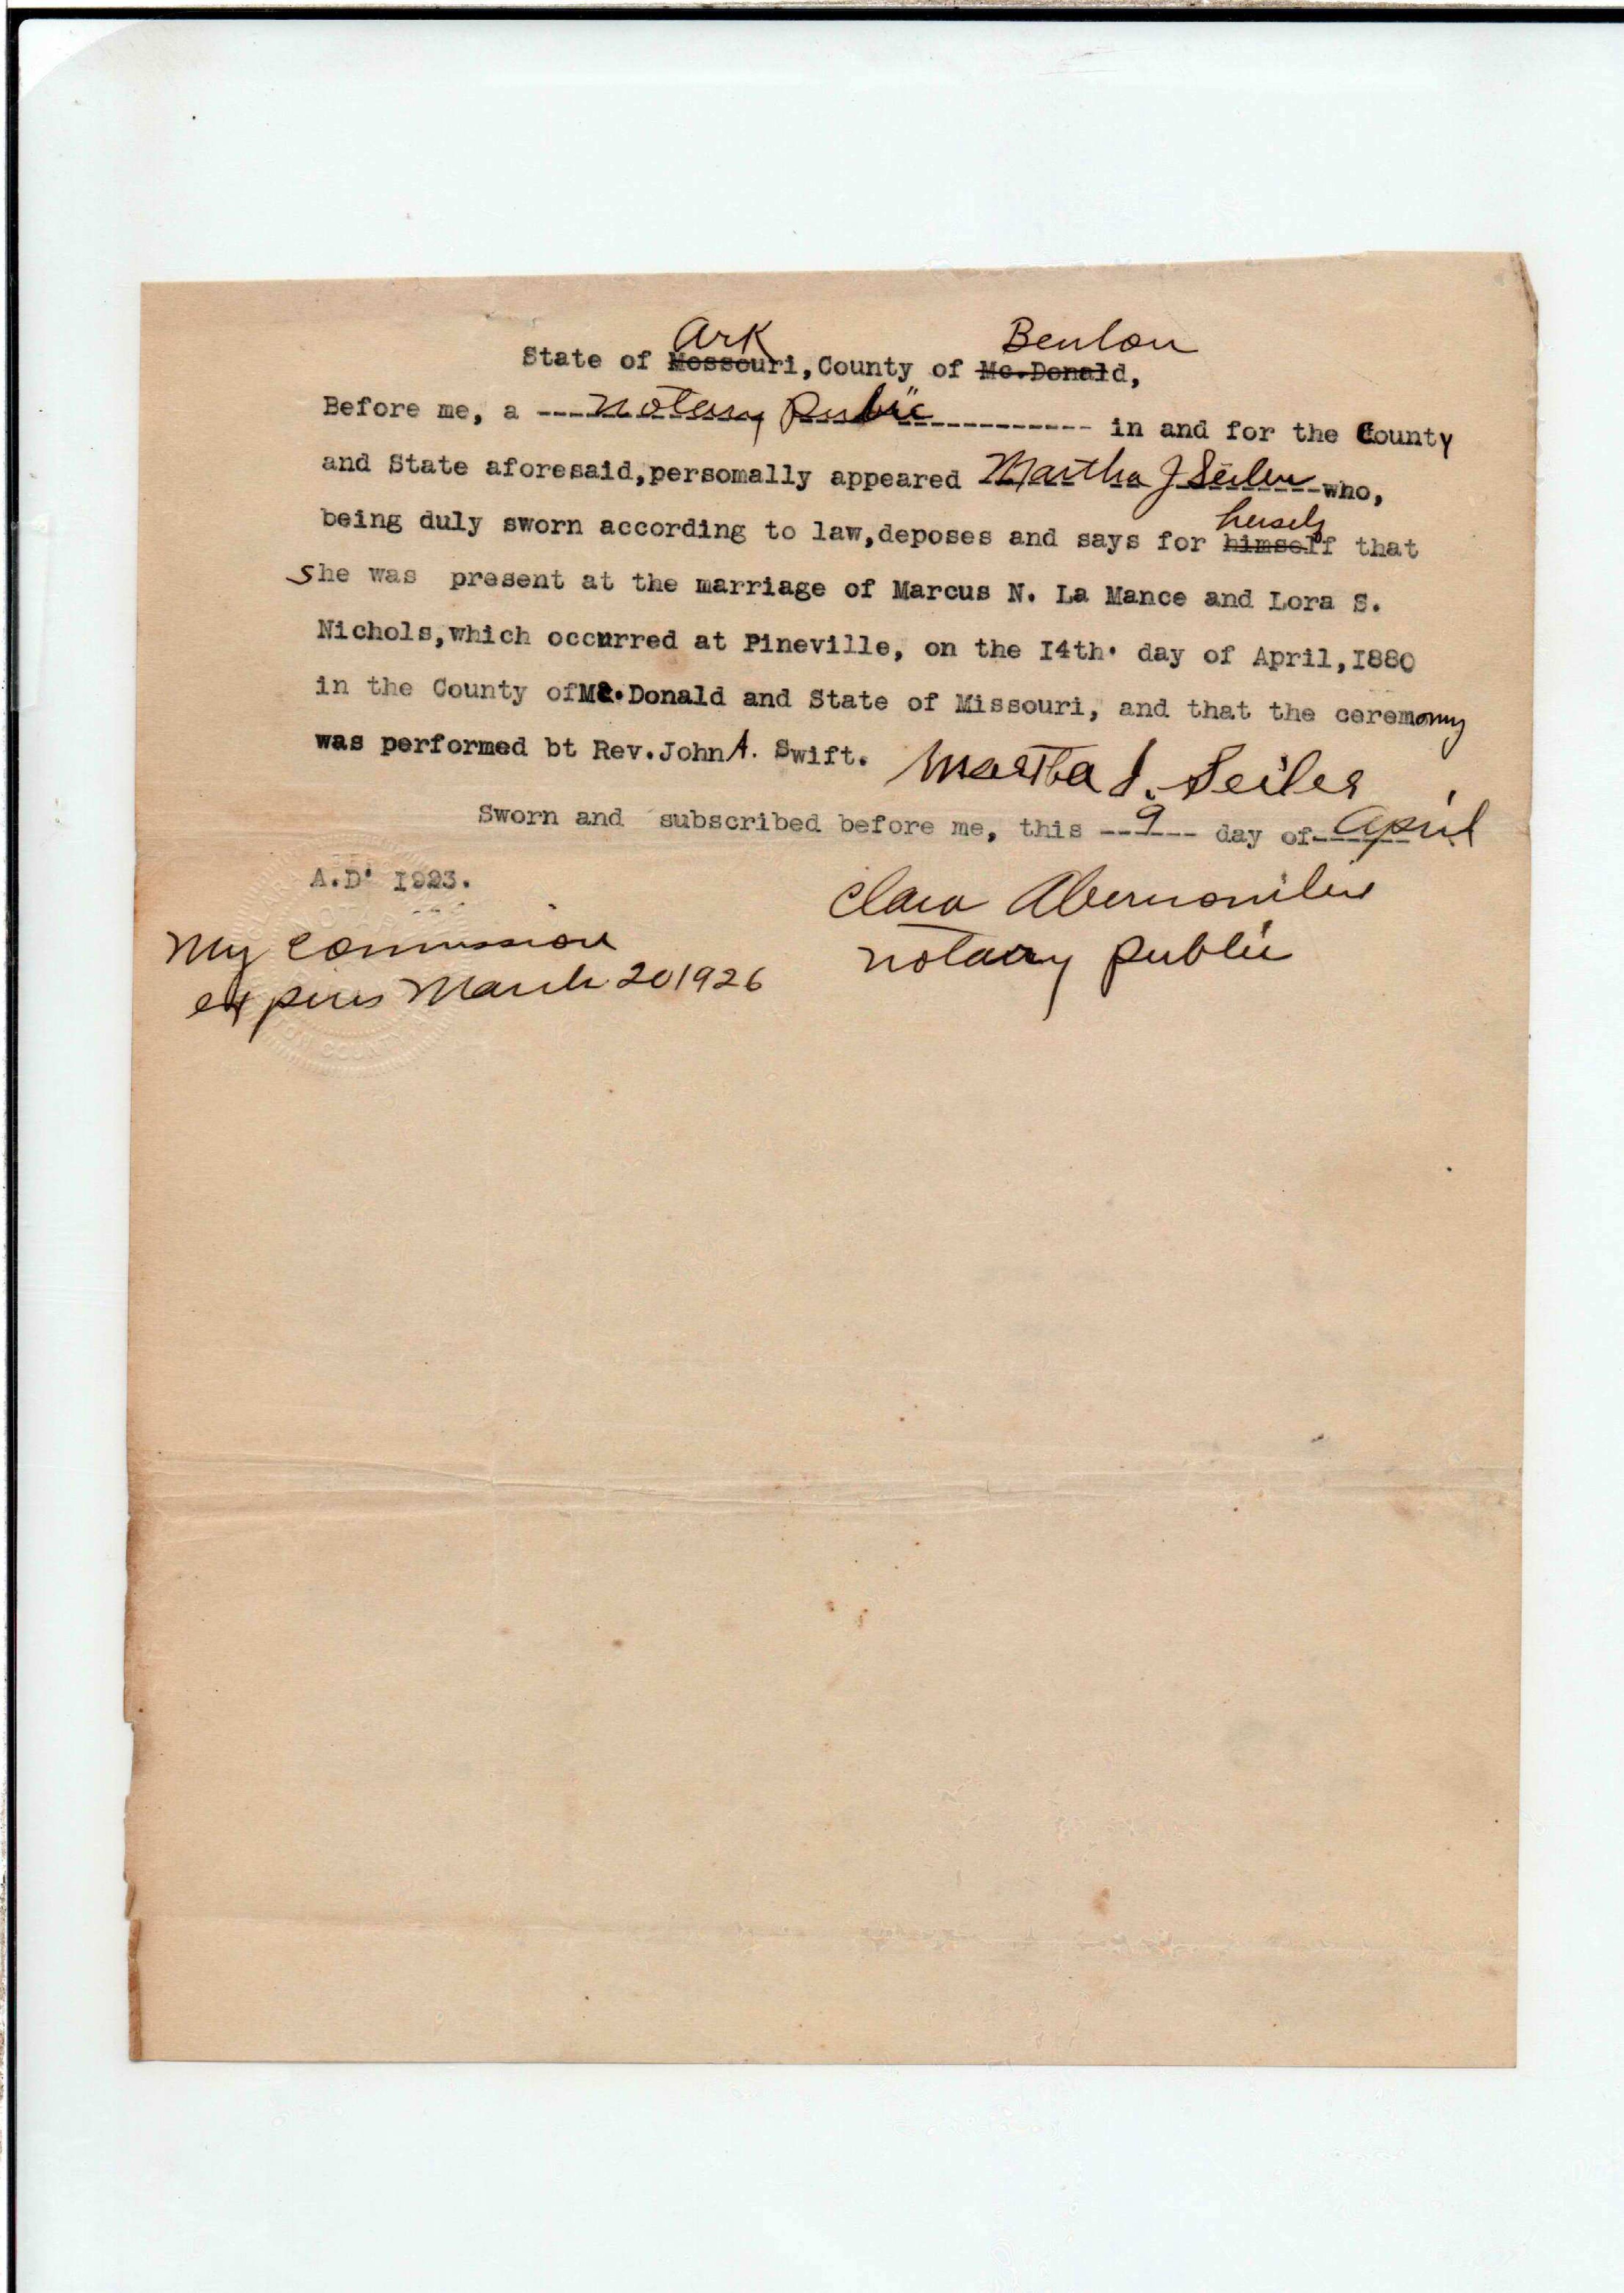 Ark Benton
State of Mossouri, County of Mc.Donald,
Before me, a ---notary public------------ in and for the County
and State aforesaid,persomally appeared Martha J Seiler who,
herself
being duly sworn according to law,deposes and says for himself that
She was present at the marriage of Marcus N. La Mance and Lora S.
Nichols,which occurred at Pineville, on the I4th. day of April,I880
in the County ofMc.Donald and State of Missouri, and that the ceremony
was performed bt Rev.John A. Swift. Martha J. Seiler
Sworn and subscribed before me, this --9--- day of April
A.D. I923.
Clara
notary public
My Commission
expires March 20 1926
CLARA
COUNTY